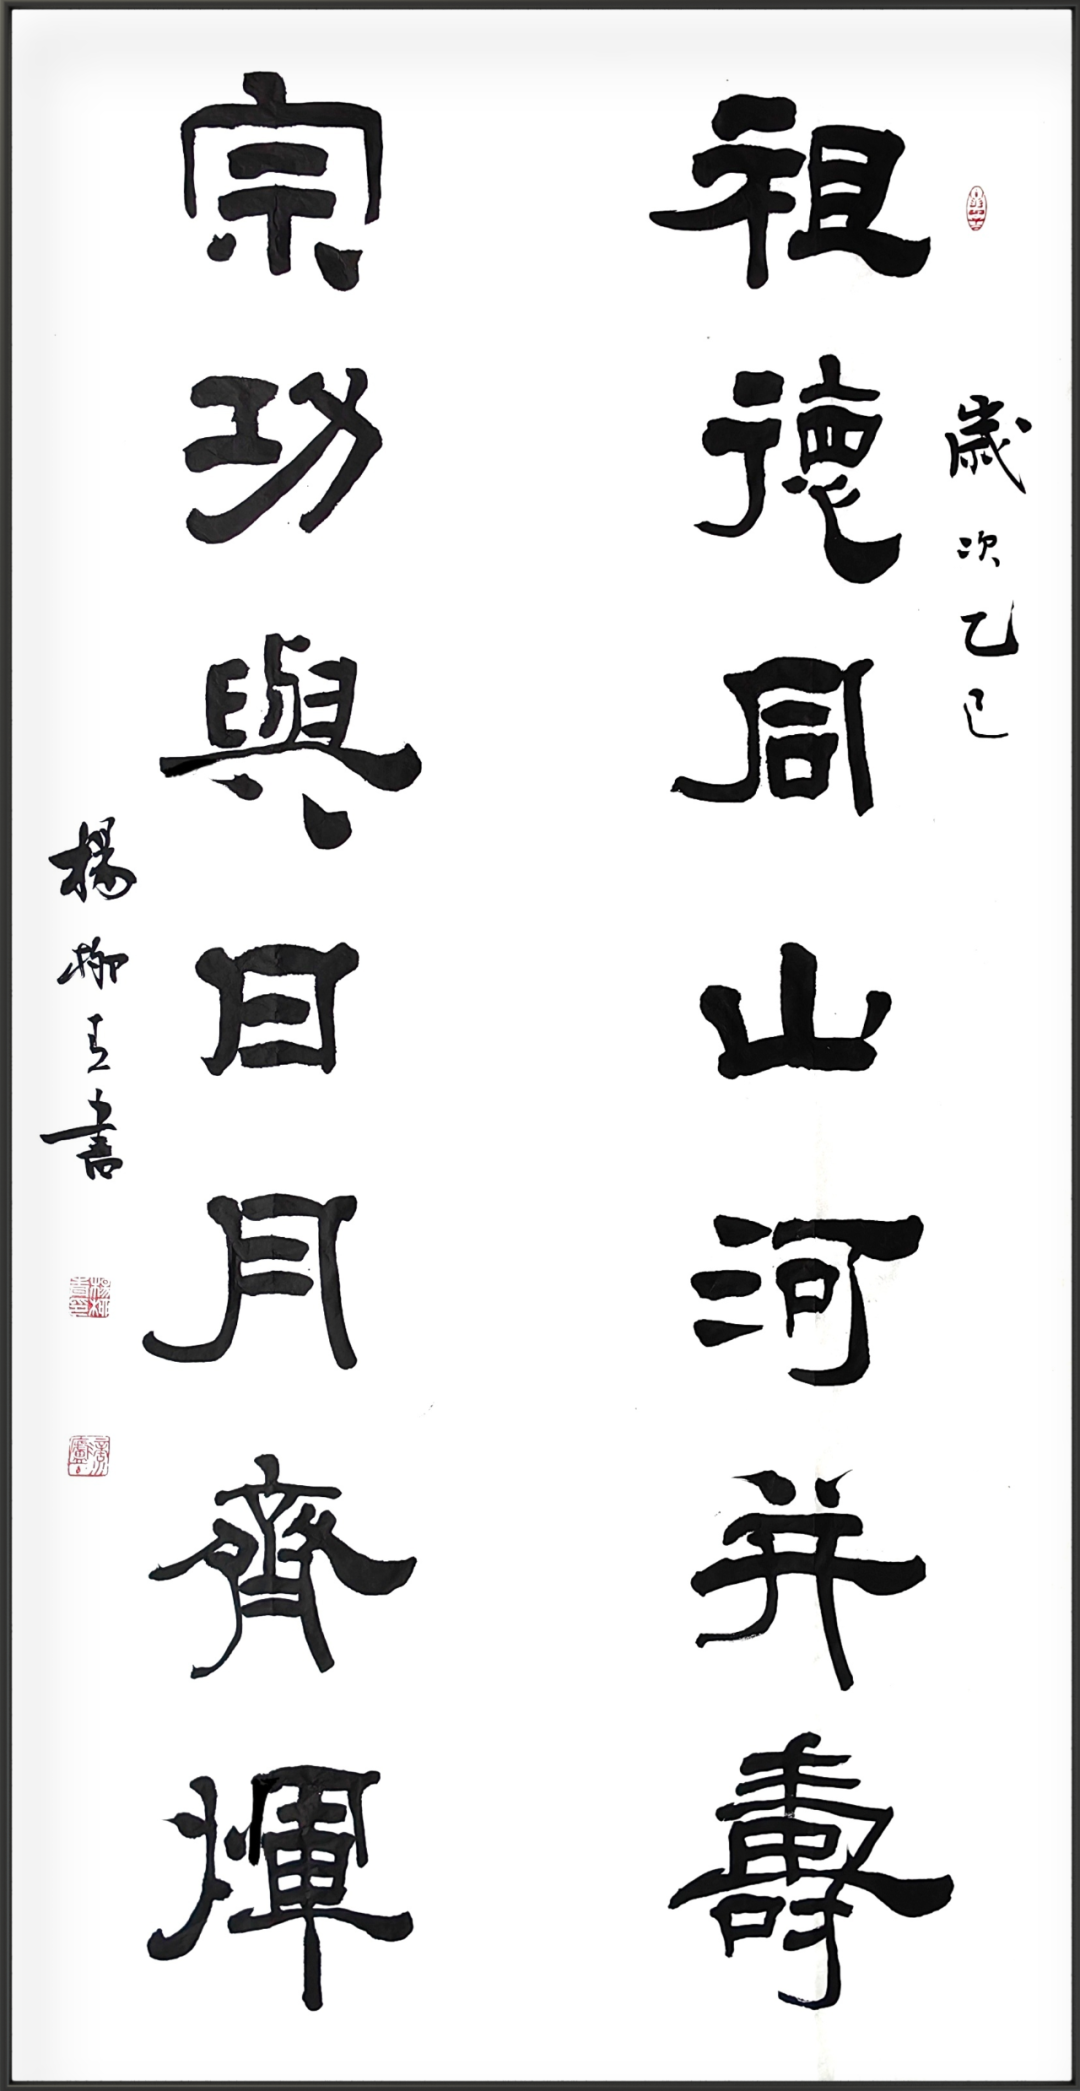 歲次乙巳
祖德同山河并壽
宗功與日月齊煇
楊柳青書